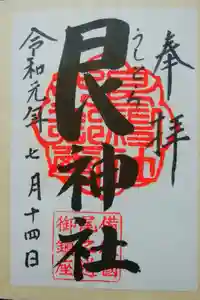 奉拝
うしとら
艮神社
令和元年七月十四日
備後國
尾道
御鎮座